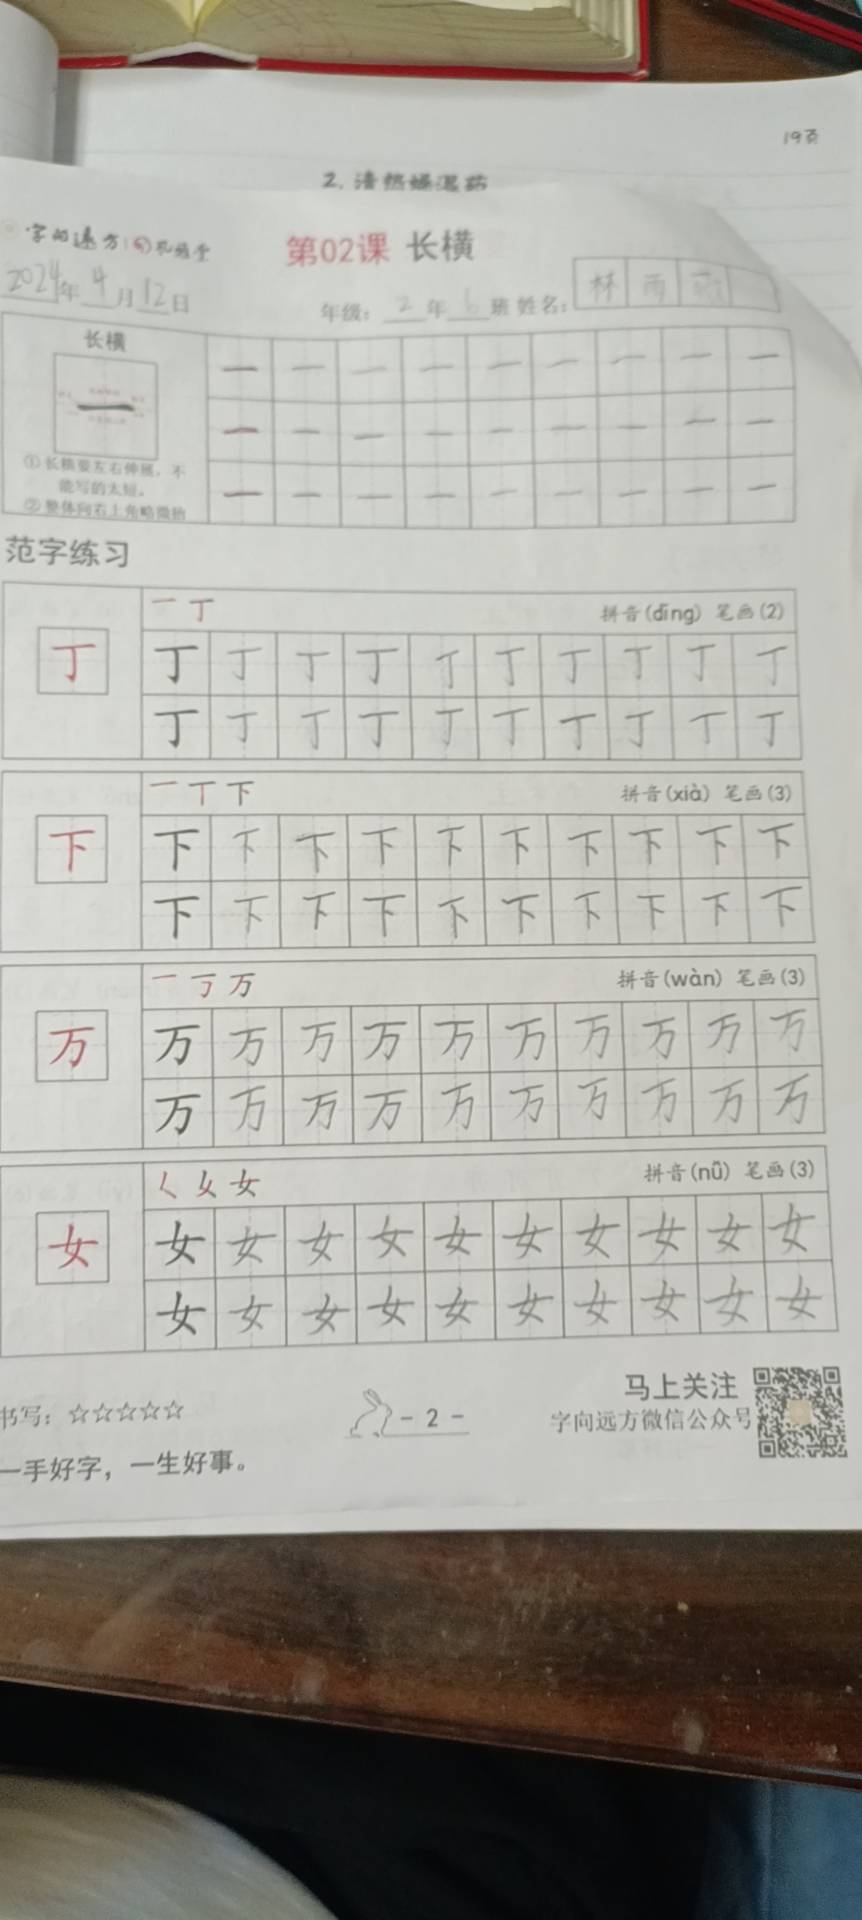 19页
2.清热燥湿药
第02课 长横
2024年4月12日
年级：2年6班 姓名：林雨
长横
一 一 一 一 一 一 一 一 一
一 一 一 一 一 一 一 一 一
①长横要左右伸展，不
能写的太短。
一 一 一 一 一 一 一 一 一
②整体向右上角略微抬
范字练习
一 丁 拼音(dīng) 笔画(2)
丁 丁 丁 丁 丁 丁 丁 丁 丁 丁 丁
丁 丁 丁 丁 丁 丁 丁 丁 丁 丁
一 丅 下 拼音(xià) 笔画(3)
下 下 下 下 下 下 下 下 下 下 下
下 下 下 下 下 下 下 下 下 下
一 丂 万 拼音(wàn) 笔画(3)
万 万 万 万 万 万 万 万 万 万 万
万 万 万 万 万 万 万 万 万 万
女 拼音(nǚ) 笔画(3)
女 女 女 女 女 女 女 女 女 女 女
女 女 女 女 女 女 女 女 女 女
马上关注
书写：☆☆☆☆☆ - 2 - 字向远方微信公众号
一手好字，一生好事。